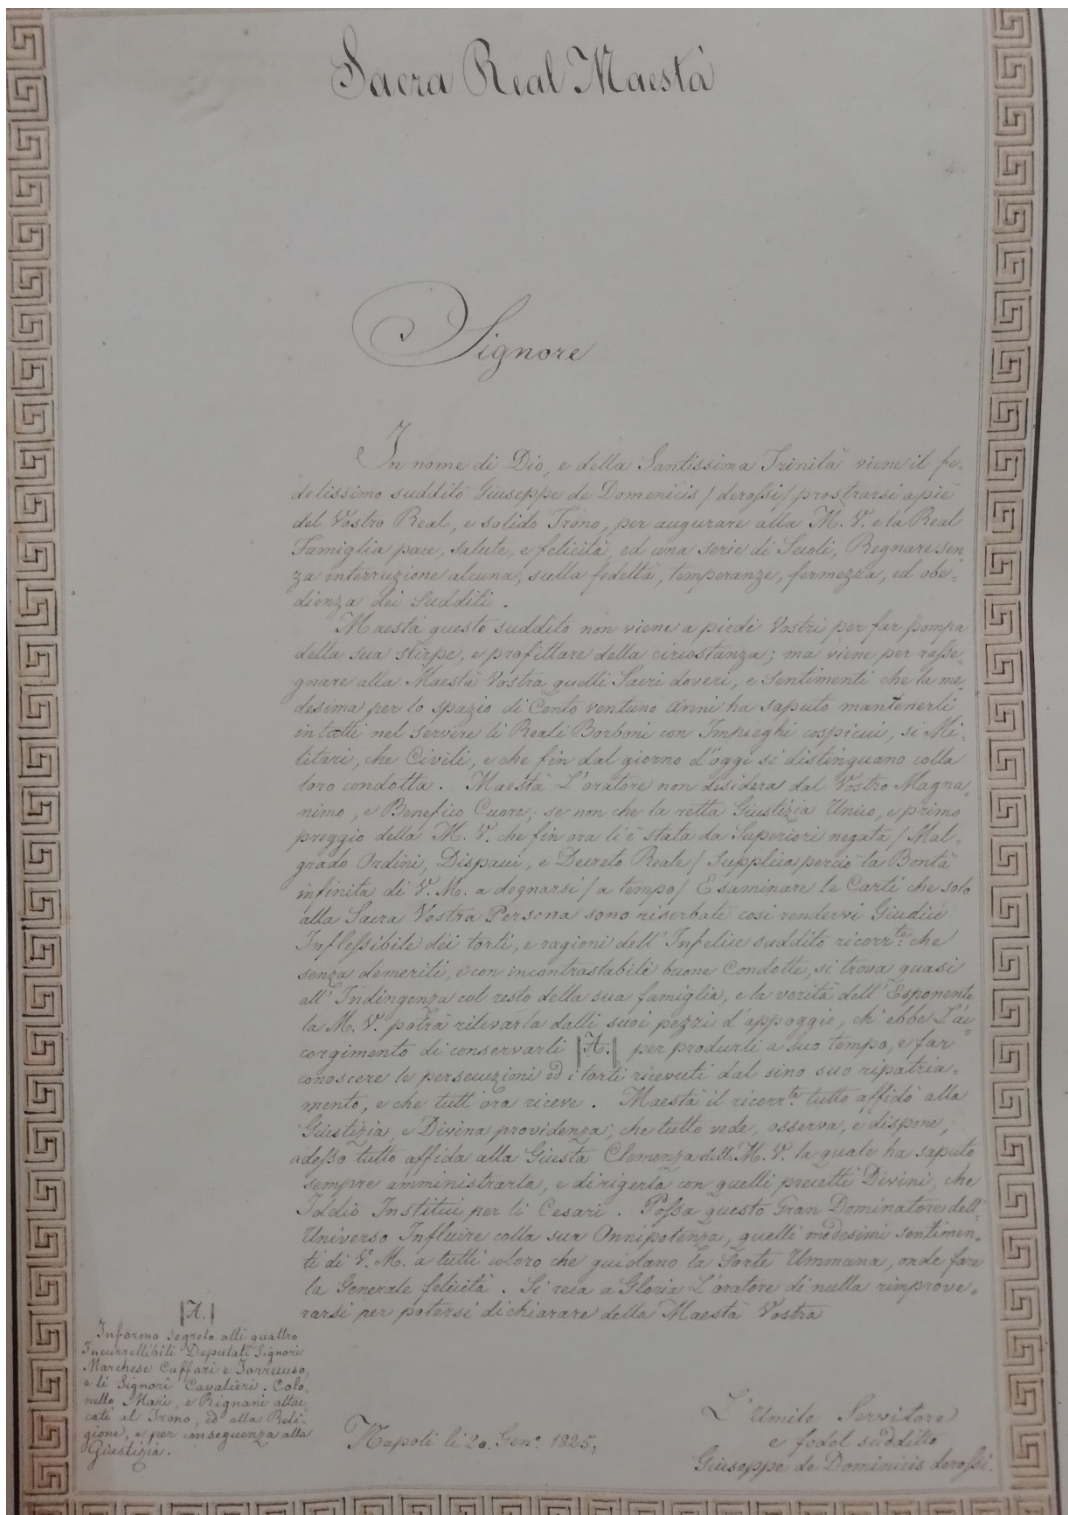 Sacra Real Maestà
Signore
In nome di Dio, e della Santissima Trinità viene il fe-
delissimo suddito Giuseppe de Domenicis / derossi / prostrarsi a piè
del Vostro Real, e solido Trono, per augurare alla M. V. e la Real
Famiglia pace, salute, e felicità, ed una serie di Secoli, Regnare sen
za interruzione alcuna, sulla fedeltà, temperanze, fermezza, ed obe-
dienza dei Sudditi.
Maestà questo suddito non viene a piedi Vostri per far pompa
della sua stirpe, e profittare della circostanza; ma viene per rasse-
gnare alla Maestà Vostra quelli Sacri doveri, e Sentimenti che la me-
desima per lo spazio di Cento ventuno Anni ha saputo mantenerli
intatti nel servire li Reali Borboni con Impieghi cospicui, si Mi-
litari, che Civili, e che fin dal giorno d'oggi si distinguano colla
loro condotta. Maestà L'oratore non desidera dal Vostro Magna-
nimo, e Benefico Cuore; se non che la retta Giustizia Unico, e primo
preggio della M. V. che fin ora li è stata da Superiori negata / Mal-
grado Ordini, Dispacci, e Decreto Reale / Supplica perciò la Bontà
infinita di V. M. a degnarsi / a tempo / Esaminare le Carti che solo
alla Sacra Vostra Persona sono riserbate così rendervi Giudice
Inflessibile dei torti, e ragioni dell'Infelice suddito ricorr.te che
senza demeriti, e con incontrastabili buone Condotte, si trova quasi
all'Indingenza col resto della sua famiglia, e la verità dell'Esponente
la M. V. potrà rilevarla dalli suoi pezzi d'appoggio, ch'ebbe L'ac-
corgimento di conservarli |A.| per produrli a suo tempo, e far
conoscere le persecuzioni ed i torti ricevuti dal sino suo ripatria-
mento, e che tutt'ora riceve. Maestà il ricorr.te tutto affidò alla
Giustizia, e Divina providenza, che tutto vede, osserva, e dispone,
adesso tutto affida alla Giusta Clemenza della M. V. la quale ha saputo
sempre amministrarla, e dirigerla con quelli precetti Divini, che
Iddio Instituì per li Cesari. Possa questo Gran Dominatore dell'
Universo Influire colla sua Onnipotenza, quelli medesimi sentimen-
ti di V. M. a tutti coloro che guidano la Sorte Ummana, onde fare
la Generale felicità. Si reca a Gloria L'oratore di nulla rimprove-
rarsi per potersi dichiarare della Maestà Vostra
|A.|
Informo Segreto alli quattro
Deputati Signori
Marchese Cuffari e Torrecuso,
e li Signori Cavalieri. Colo-
nello Mari, e Rignani attac-
cati al Trono, ed alla Reli-
gione, e per conseguenza alla
Giustizia.
Napoli li 20. Gen.o 1825,
L'Umile Servitore
e fedel suddito
Giuseppe de Dominicis derossi.